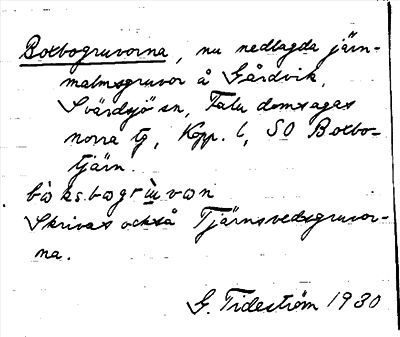 Boxbogruvorna, nu nedlagda järn-
malmsgruvor å Gårdvik,
Svärdsjö sn, Falu domsagas
norra tg, Kopp. l, SO Boxbo-
tjärn.
Skrives också Tjärnsvedsgruvor-
na.
G. Tideström 1930